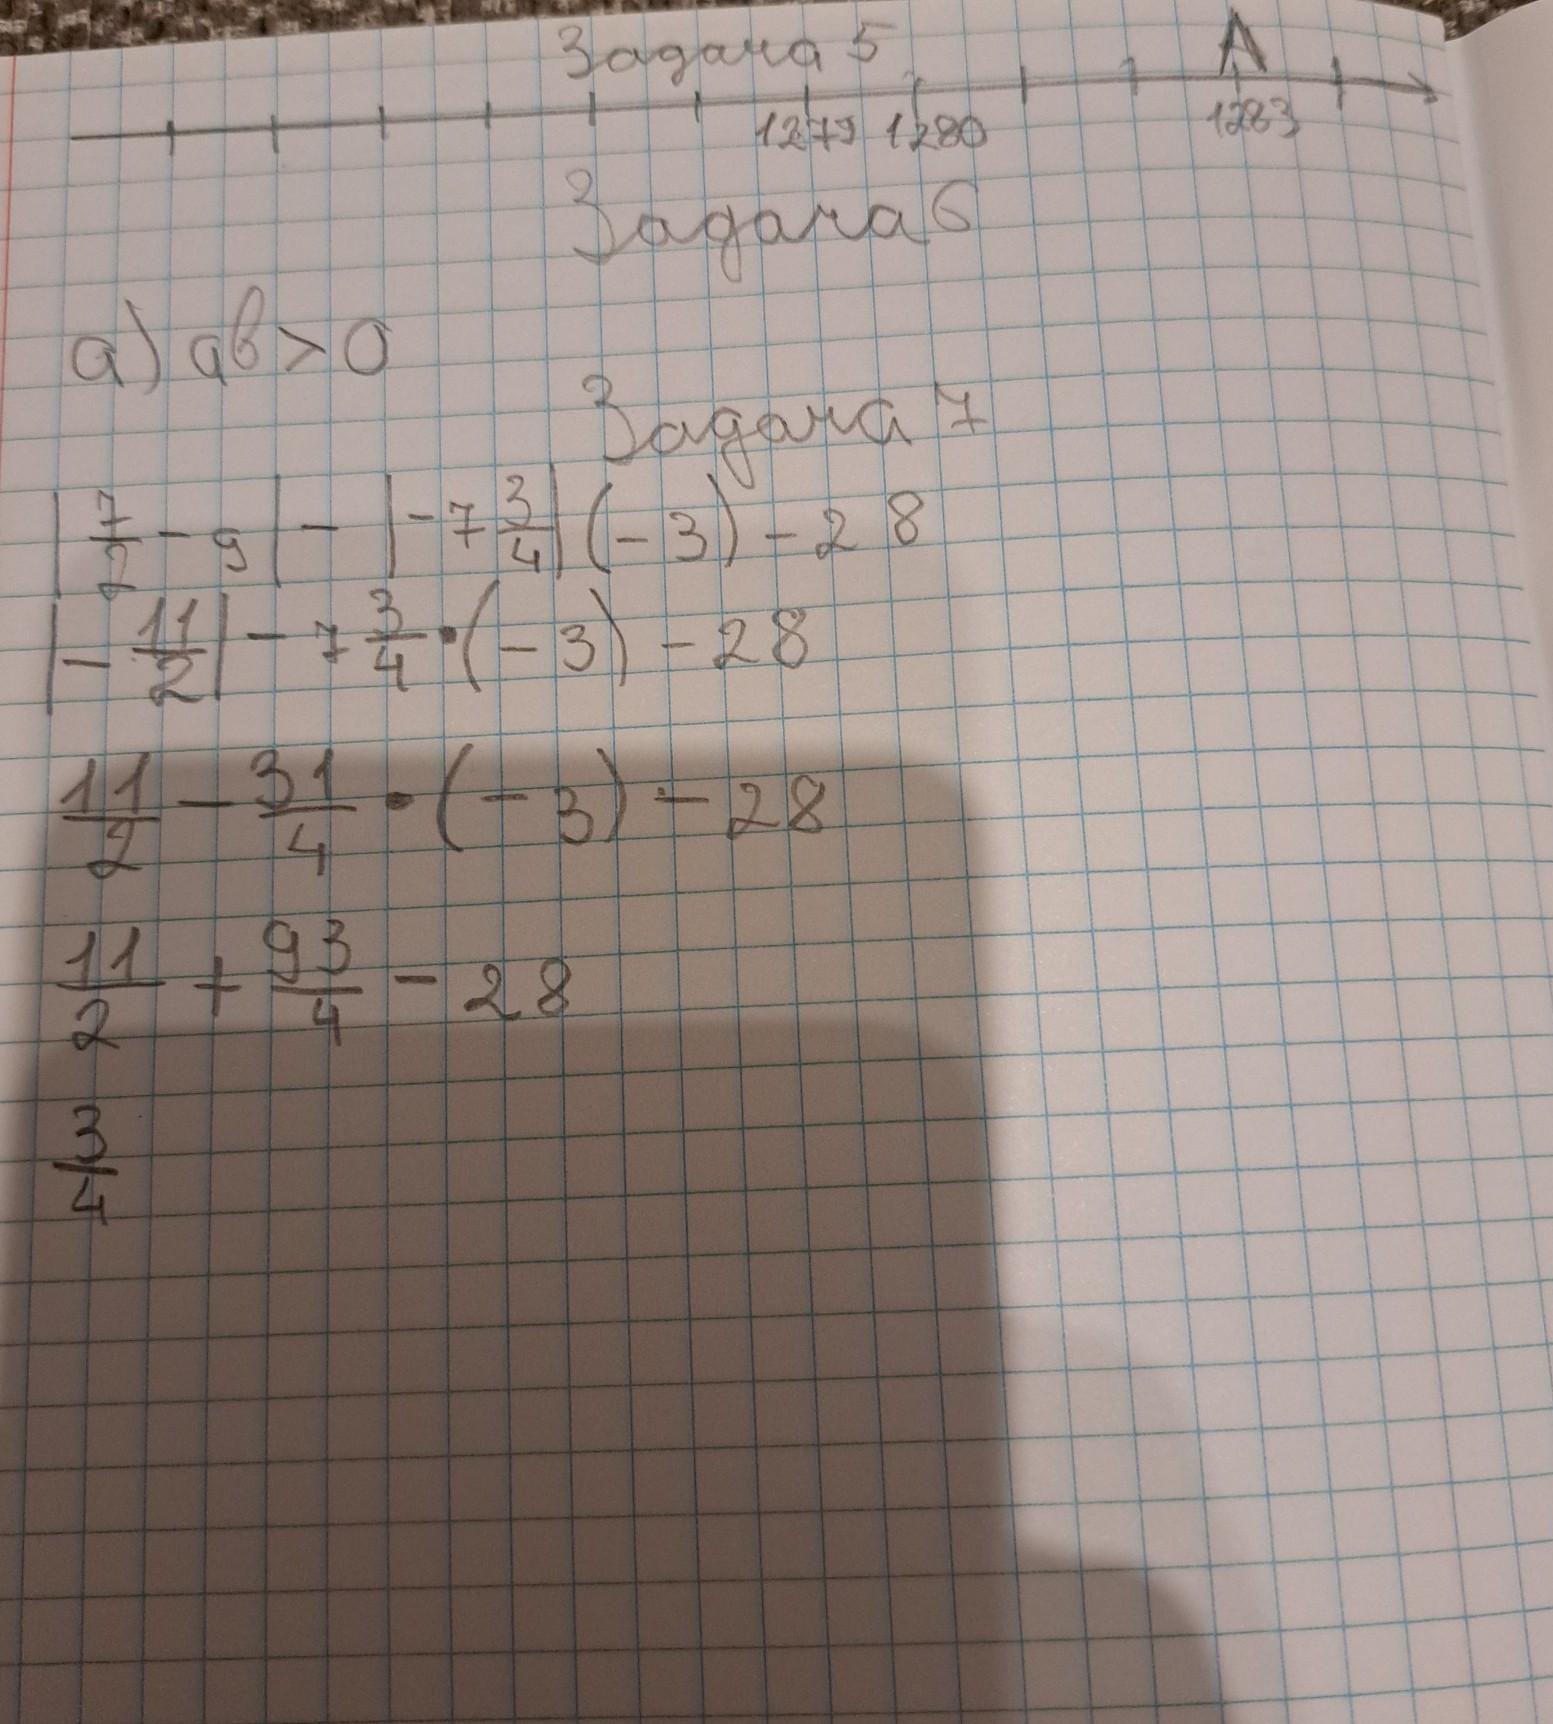 Задача 5
A
1279 1280 1283
Задача 6
а) ab > 0
Задача 7
|7/2 - 9| - |-7 3/4| (-3) - 28
|- 11/2| - 7 3/4 · (-3) - 28
11/2 - 31/4 · (-3) - 28
11/2 + 93/4 - 28
3/4